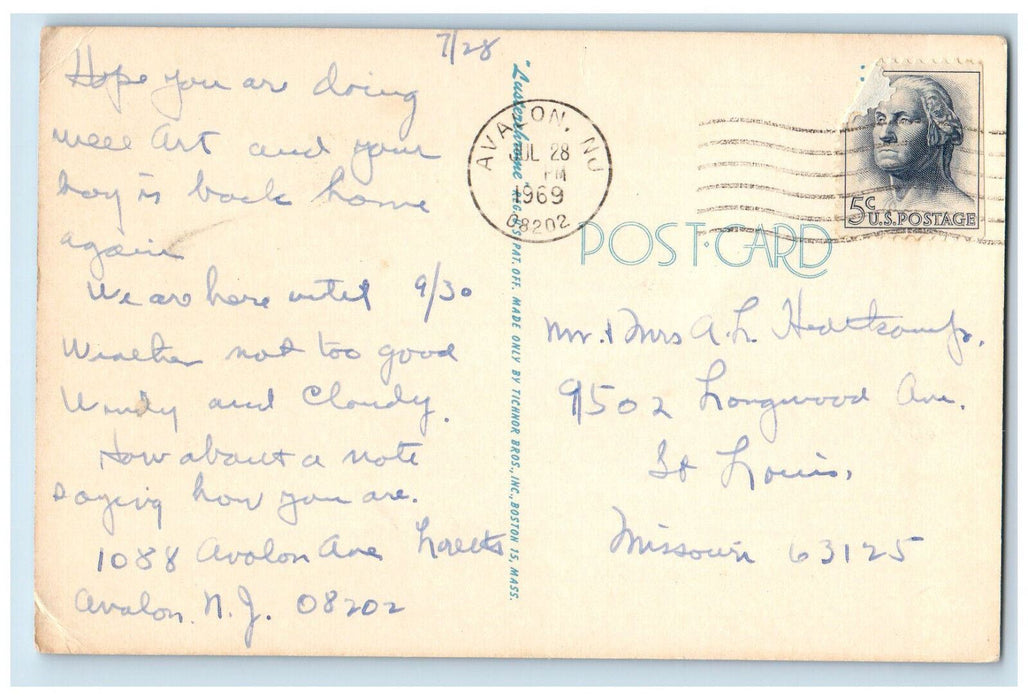 7/28
Hope you are doing
well Art and your
boy is back home
again
We are here until 9/30
Weather not too good
Windy and Cloudy.
How about a note
saying how you are.
Loretta
1088 Avalon Ave
Avalon. N.J. 08202
"Lusterchrome" REG. U.S. PAT. OFF. MADE ONLY BY TICHNOR BROS., INC., BOSTON 15, MASS.
AVALON, NJ
JUL 28
PM
1969
08202
5c
U.S. POSTAGE
POST·CARD
Mr. & Mrs A. L.
9502 Longwood Ave.
St Louis,
Missouri 63125